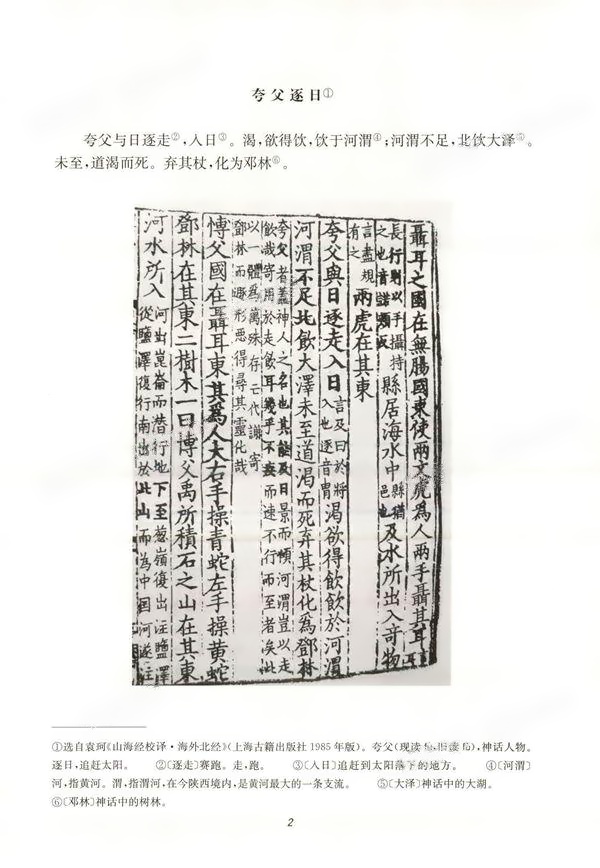 夸父逐日①
夸父与日逐走②，入日③。渴，欲得饮，饮于河渭④；河渭不足，北饮大泽⑤。
未至，道渴而死。弃其杖，化为邓林⑥。
聶耳之國在無膓國東使兩文虎為人兩手聶其耳
長行則以手攝持
之也音諾頰反
縣居海水中
縣猶
邑也
及水所出入奇物
言盡規
有之
兩虎在其東
夸父與日逐走入日
言及日於將
入也逐音胄
渴欲得飲飲於河渭
河渭不足北飲大澤未至道渴而死弃其杖化為鄧林
夸父者蓋神人之名也其能及日景而傾河渭豈以走
飲哉寄用於走飲耳幾乎不疾而速不行而至者矣此
以一體為萬殊存亡代謝寄
鄧林而遯形惡得尋其靈化哉
愽父國在聶耳東其為人大右手操青蛇左手操黃蛇
鄧林在其東二樹木一曰愽父禹所積石之山在其東
河水所入
河出崑崙而潜行地下至葱嶺復出注鹽澤
從鹽澤復行南出於此山而為中国河遂注
①选自袁珂《山海经校译·海外北经》（上海古籍出版社 1985 年版）。夸父（现读 fù，旧读 fǔ），神话人物。
逐日，追赶太阳。 ②〔逐走〕赛跑。走，跑。 ③〔入日〕追赶到太阳落下的地方。 ④〔河渭〕
河，指黄河。渭，指渭河，在今陕西境内，是黄河最大的一条支流。 ⑤〔大泽〕神话中的大湖。
⑥〔邓林〕神话中的树林。
2